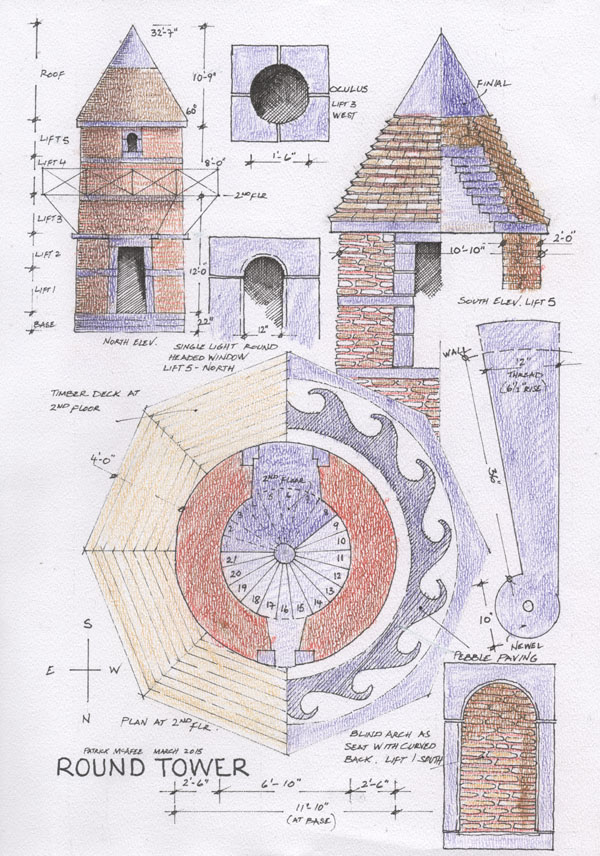 32'-7"
ROOF
10'-9"
60°
LIFT 5
LIFT 4
8'-0"
2ND FLR
LIFT 3
LIFT 2
12'-0"
LIFT 1
BASE
22"
NORTH ELEV.
OCULUS
LIFT 3
WEST
1'-6"
12"
SINGLE LIGHT ROUND
HEADED WINDOW
LIFT 5 - NORTH
FINIAL
10'-10"
2'-0"
SOUTH ELEV. LIFT 5
WALL
12"
THREAD
(6½" RISE)
36"
10"
NEWEL
TIMBER DECK AT
2ND FLOOR
4'-0"
2ND FLOOR
2
3
4
5
6
7
8
9
10
11
12
13
14
15
16
17
18
19
20
21
PEBBLE PAVING
S
E W
N
PLAN AT 2ND FLR.
BLIND ARCH AS
SEAT WITH CURVED
BACK. LIFT 1 SOUTH
PATRICK McAFEE MARCH 2015
ROUND TOWER
2'-6" 6'-10" 2'-6"
11'-10"
(AT BASE)